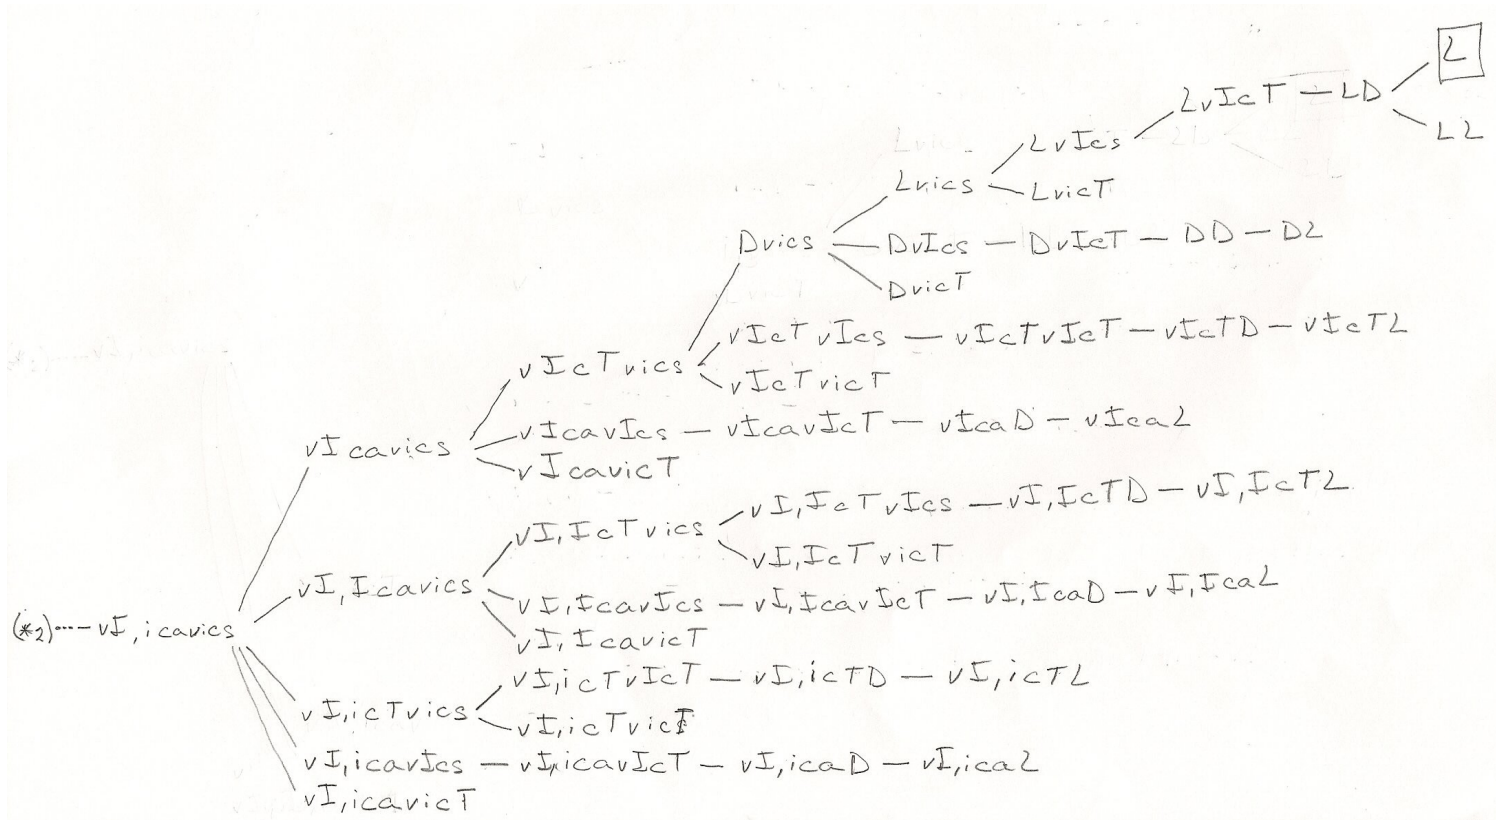 2
LvIcT — LD
L2
LvIcs
Lvics
LvicT
Dvics
DvIcs — DvIcT — DD — D2
DvicT
vIcTvIcs — vIcTvIcT — vIcTD — vIcTL
vIcTvics
vIcTvicT
vIcavIcs — vIcavIcT — vIcaD — vIcaL
vIcavics
vIcavicT
vI,IcTvIcs — vI,IcTD — vI,IcTL
vI,IcTvics
vI,IcTvicT
vI,Icavics
vI,IcavIcs — vI,IcavIcT — vI,IcaD — vI,IcaL
(*2)···— vI,icavics
vI,IcavicT
vI,icTvIcT — vI,icTD — vI,icTL
vI,icTvics
vI,icTvicT
vI,icavIcs — vI,icavIcT — vI,icaD — vI,icaL
vI,icavicT